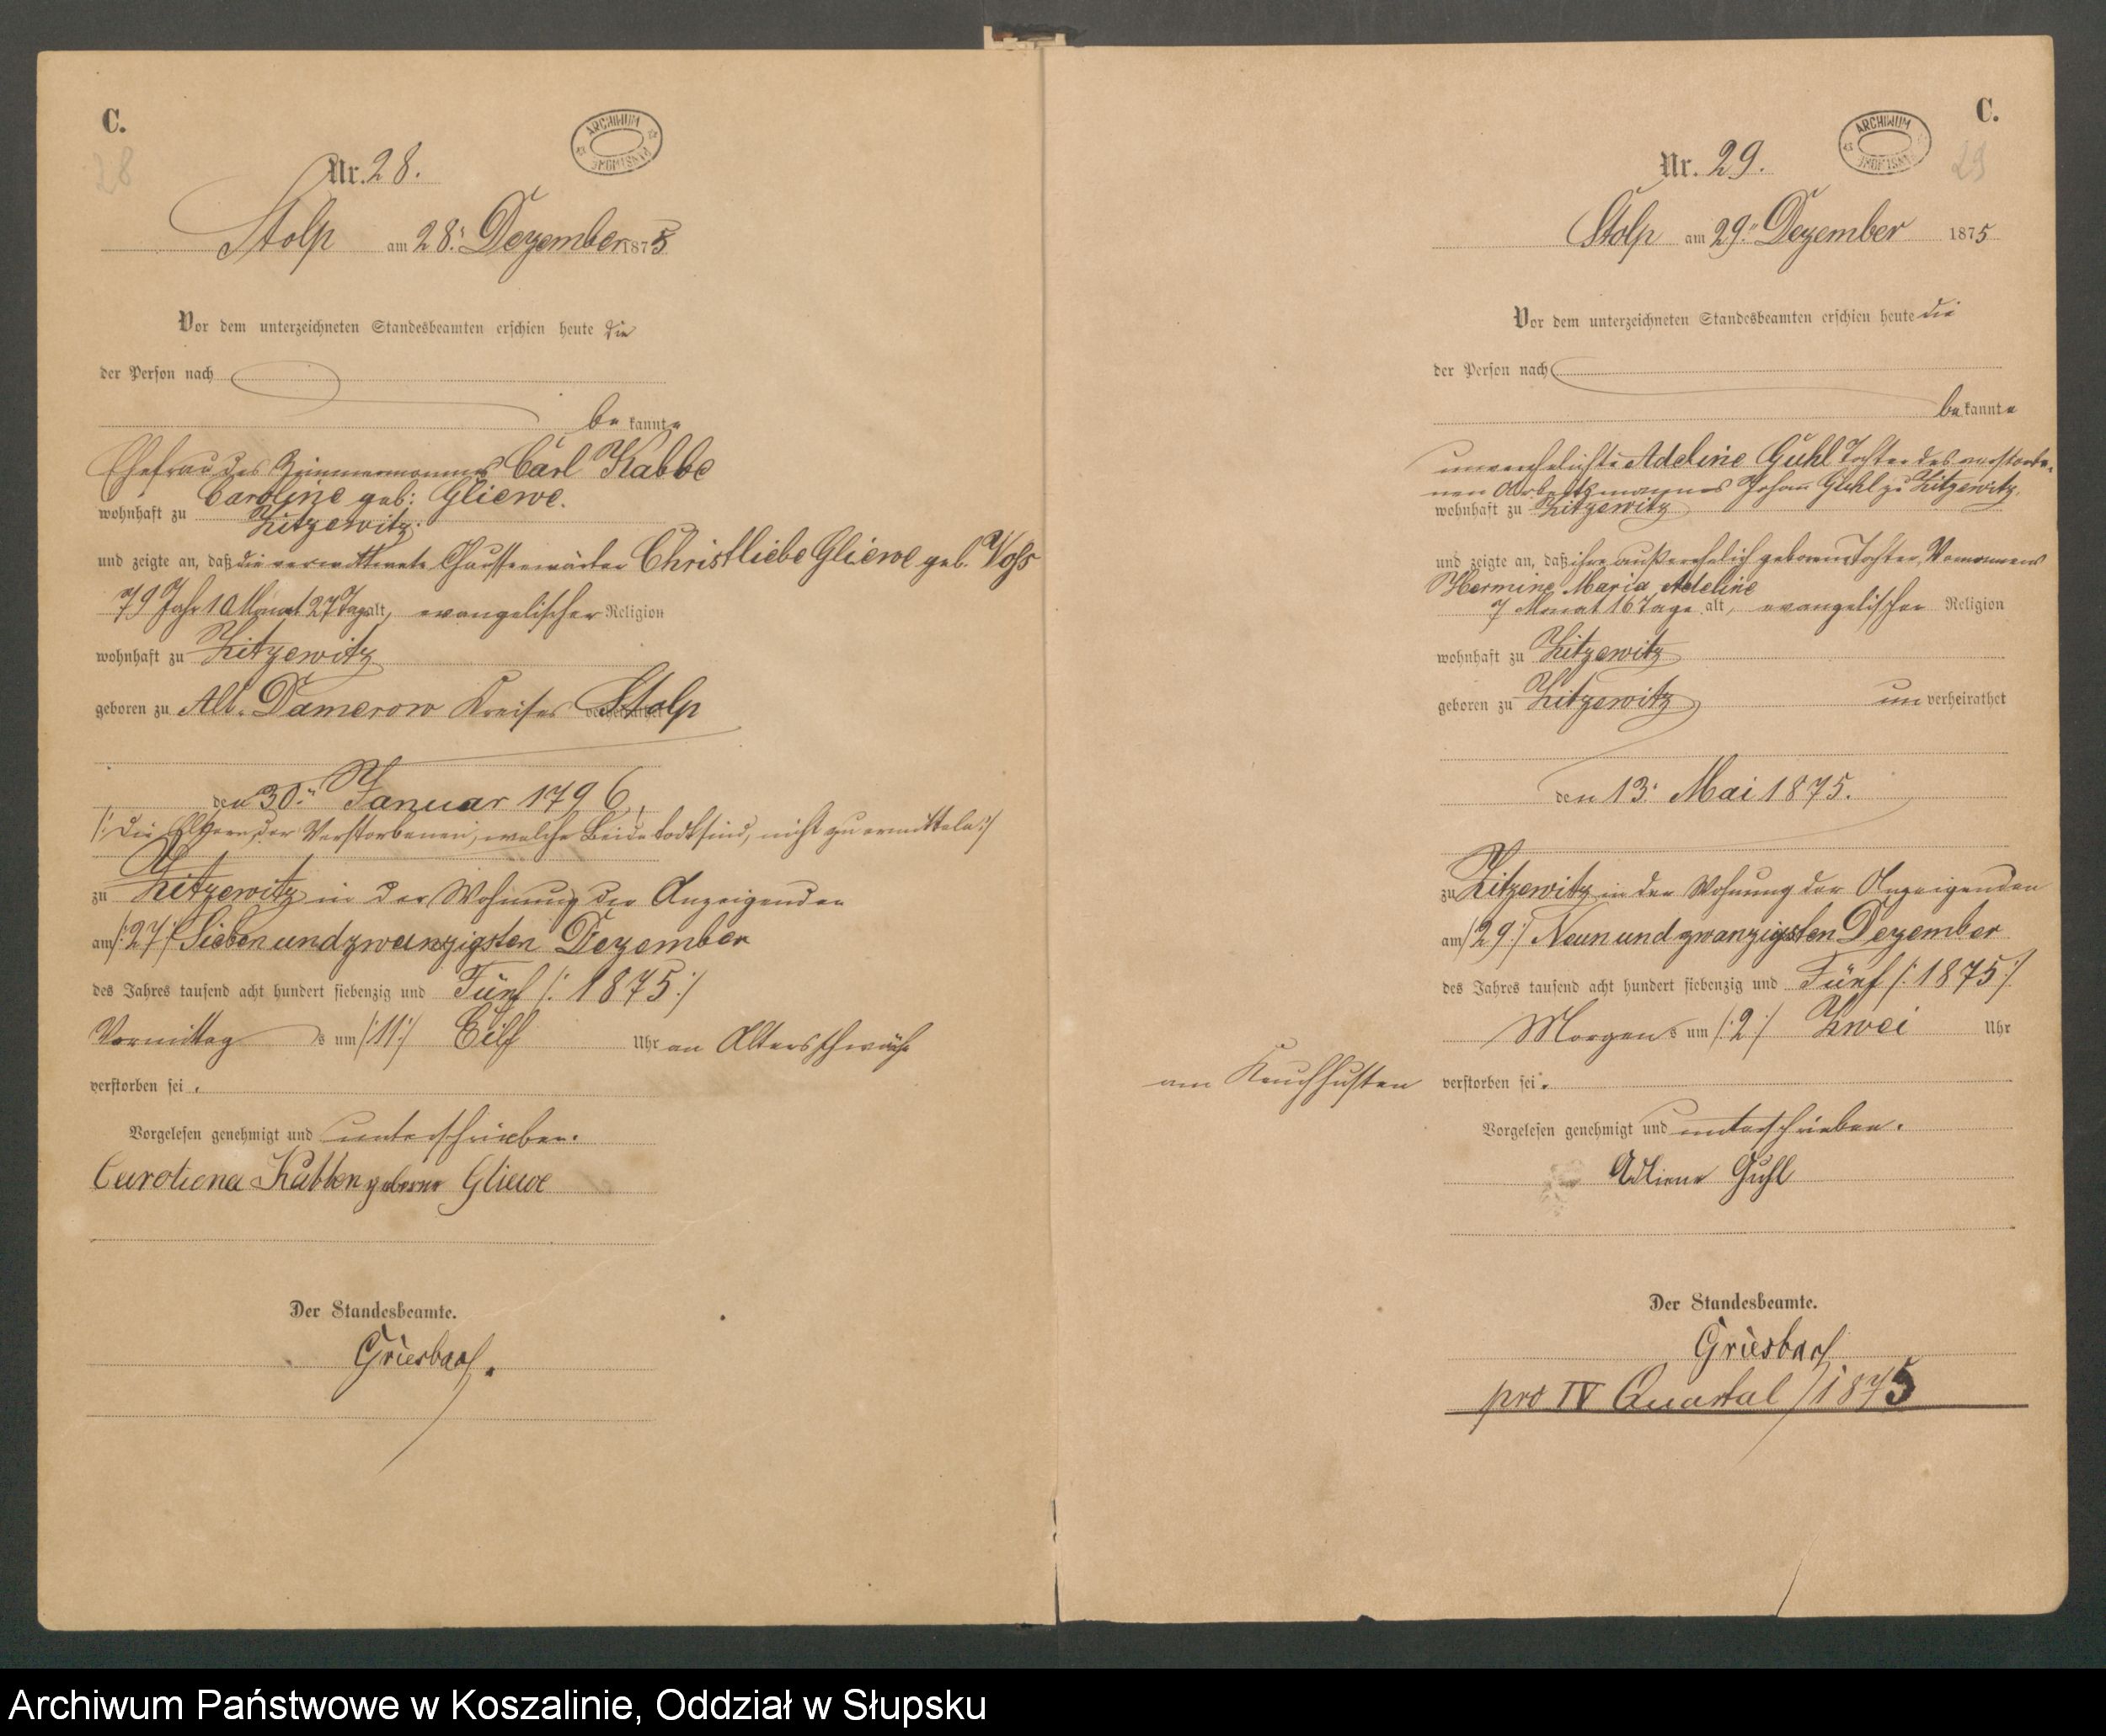 C.
28
ARCHIWUM
Nr. 28.
Stolp am 28. Dezember 1875
Vor dem unterzeichneten Standesbeamten erschien heute die
der Person nach
bekannte
Ehefrau des Zimmermannes Carl Kabbe
Caroline geb: Gliewe.
wohnhaft zu Zitzewitz.
und zeigte an, daß die verwittwete Chausseewärter Christliebe Gliewe geb. Voss
79 Jahr 10 Monat 27 Tage alt, evangelischer Religion
wohnhaft zu Zitzewitz
geboren zu Alt-Damerow Kreises Stolp
den 30. Januar 1796,
/: die Eltern der Verstorbenen, welche Beide todt sind, nicht zu ermitteln :/
zu Zitzewitz in der Wohnung der Anzeigenden
am /: 27 :/ Sieben und zwanzigsten Dezember
des Jahres tausend acht hundert siebenzig und Fünf /: 1875 :/
Vormittags um /: 11 :/ Eilf Uhr an Altersschwäche
verstorben sei.
Vorgelesen genehmigt und unterschrieben.
Caroliena Kabben geborne Gliewe
Der Standesbeamte.
Griesbach.
C.
29
ARCHIWUM
Nr. 29.
Stolp am 29. Dezember 1875
Vor dem unterzeichneten Standesbeamten erschien heute die
der Person nach
bekannte
unverehelichte Adeline Guhl Tochter des verstorbe-
nen Arbeitsmannes Johann Guhl zu Zitzewitz.
wohnhaft zu Zitzewitz
und zeigte an, daß ihre außerehelich geborene Tochter, Vornamens
Hermine Maria Adeline
7 Monat 16 Tage alt, evangelischer Religion
wohnhaft zu Zitzewitz
geboren zu Zitzewitz, unverheirathet
den 13. Mai 1875.
zu Zitzewitz in der Wohnung der Anzeigenden
am /: 29 :/ Neun und zwanzigsten Dezember
des Jahres tausend acht hundert siebenzig und Fünf /: 1875 :/
Morgens um /: 2 :/ Zwei Uhr
am Keuchhusten verstorben sei.
Vorgelesen genehmigt und unterschrieben.
Adliene Guhl
Der Standesbeamte.
Griesbach
pro IV Quartal 1875
Archiwum Państwowe w Koszalinie, Oddział w Słupsku